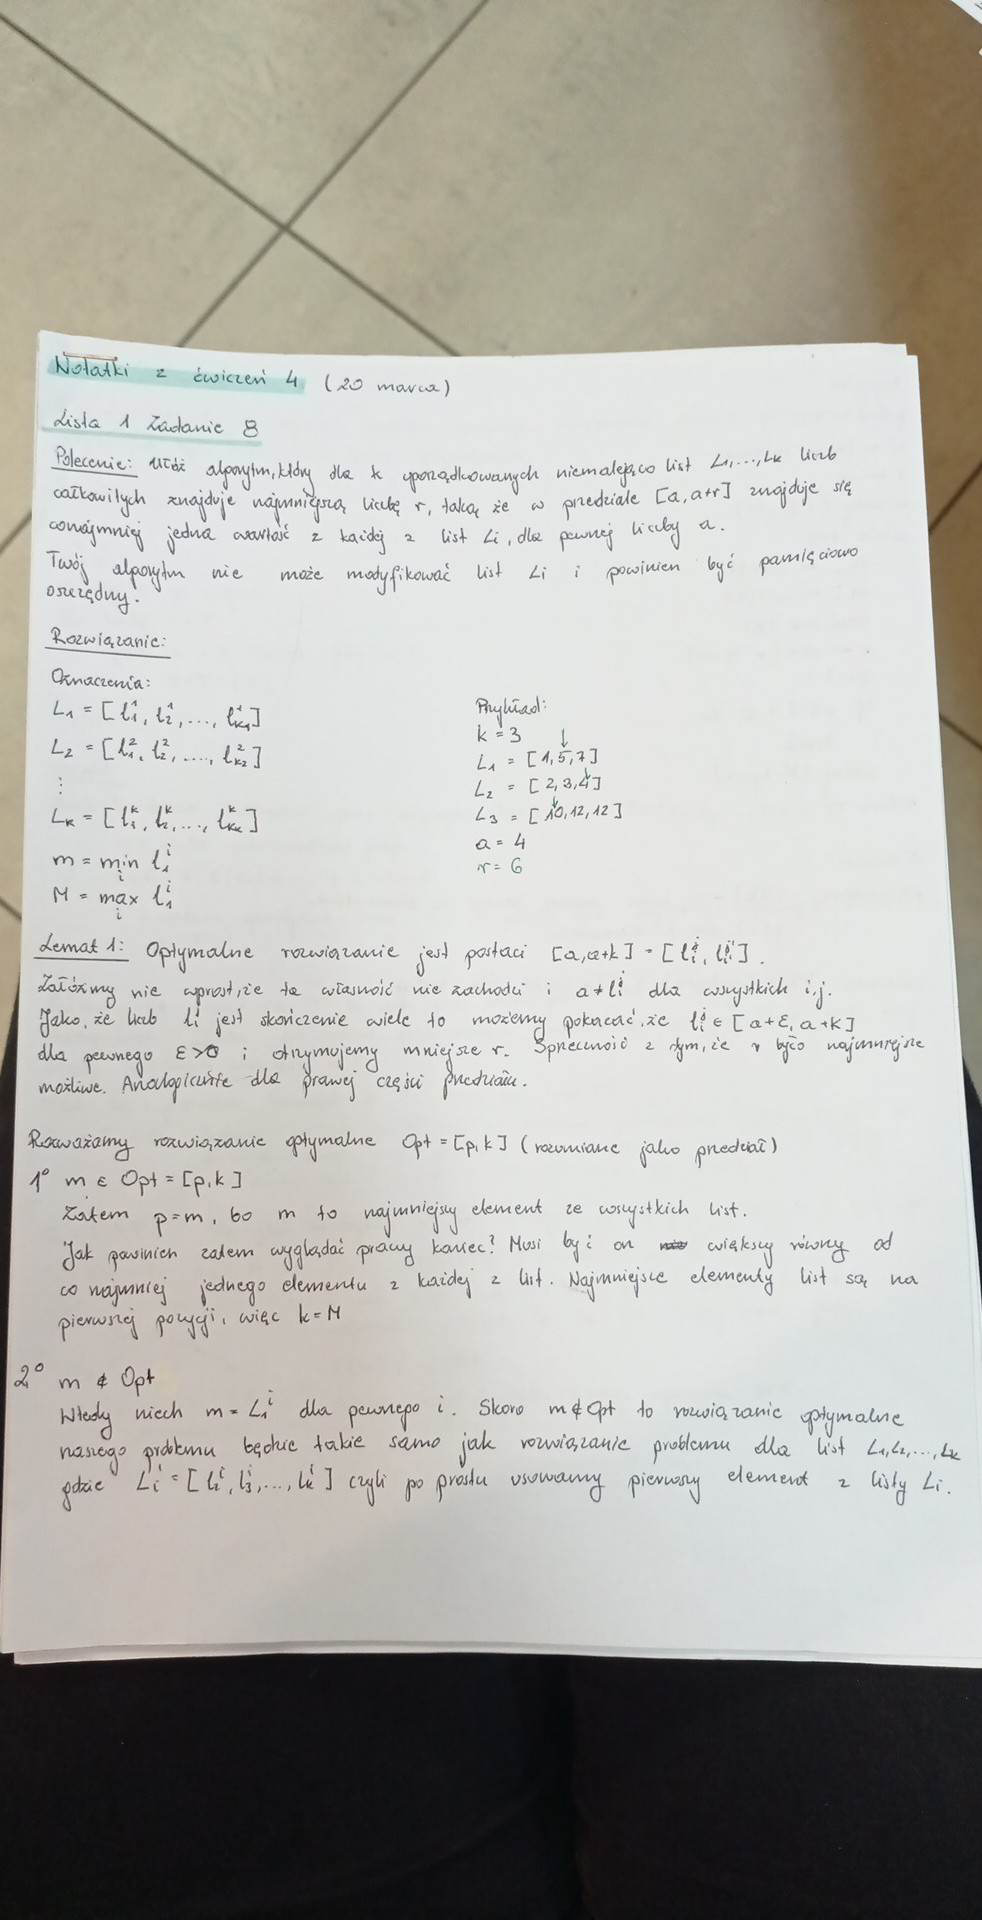 Notatki z ćwiczeń 4 (20 marca)
Lista 1 Zadanie 8
Polecenie: Ułóż algorytm, który dla k uporządkowanych niemalejąco list L₁,...,Lₖ liczb
całkowitych znajduje najmniejszą liczbę r, taką że w przedziale [a, a+r] znajduje się
conajmniej jedna wartość z każdej z list Lᵢ, dla pewnej liczby a.
Twój algorytm nie może modyfikować list Lᵢ i powinien być pamięciowo
oszczędny.
Rozwiązanie:
Oznaczenia:
L₁ = [l₁¹, l₂¹, ..., lₖ₁¹]
L₂ = [l₁², l₂², ..., lₖ₂²]
⋮
Lₖ = [l₁ᵏ, l₂ᵏ, ..., lₖₖᵏ]
m = min l₁ⁱ
i
M = max l₁ⁱ
i
Przykład:
k = 3
L₁ = [1, 5, 7]
L₂ = [2, 3, 4]
L₃ = [10, 12, 12]
a = 4
r = 6
Lemat 1: Optymalne rozwiązanie jest postaci [a, a+k] =
Załóżmy nie wprost, że ta własność nie zachodzi i a ≠ lᵢʲ dla wszystkich i, j.
Jako, że liczb lᵢʲ jest skończenie wiele to możemy pokazać, że lᵢʲ ∈ [a+ε, a+k]
dla pewnego ε > 0 i otrzymujemy mniejsze r. Sprzeczność z tym, że r było najmniejsze
możliwe. Analogicznie dla prawej części przedziału.
Rozważamy rozwiązanie optymalne Opt = [p, k] (rozumiane jako przedział)
1° m ∈ Opt = [p, k]
Zatem p = m, bo m to najmniejszy element ze wszystkich list.
Jak powinien zatem wyglądać prawy koniec? Musi być on większy równy od
co najmniej jednego elementu z każdej z list. Najmniejsze elementy list są na
pierwszej pozycji, więc k = M
2° m ∉ Opt
Wtedy niech m = L₁ⁱ dla pewnego i. Skoro m ∉ Opt to rozwiązanie optymalne
naszego problemu będzie takie samo jak rozwiązanie problemu dla list L₁, L₂, ..., Lₖ
gdzie Lᵢ' = [l₂ⁱ, l₃ⁱ, ..., lₖⁱ] czyli po prostu usuwamy pierwszy element z listy Lᵢ.